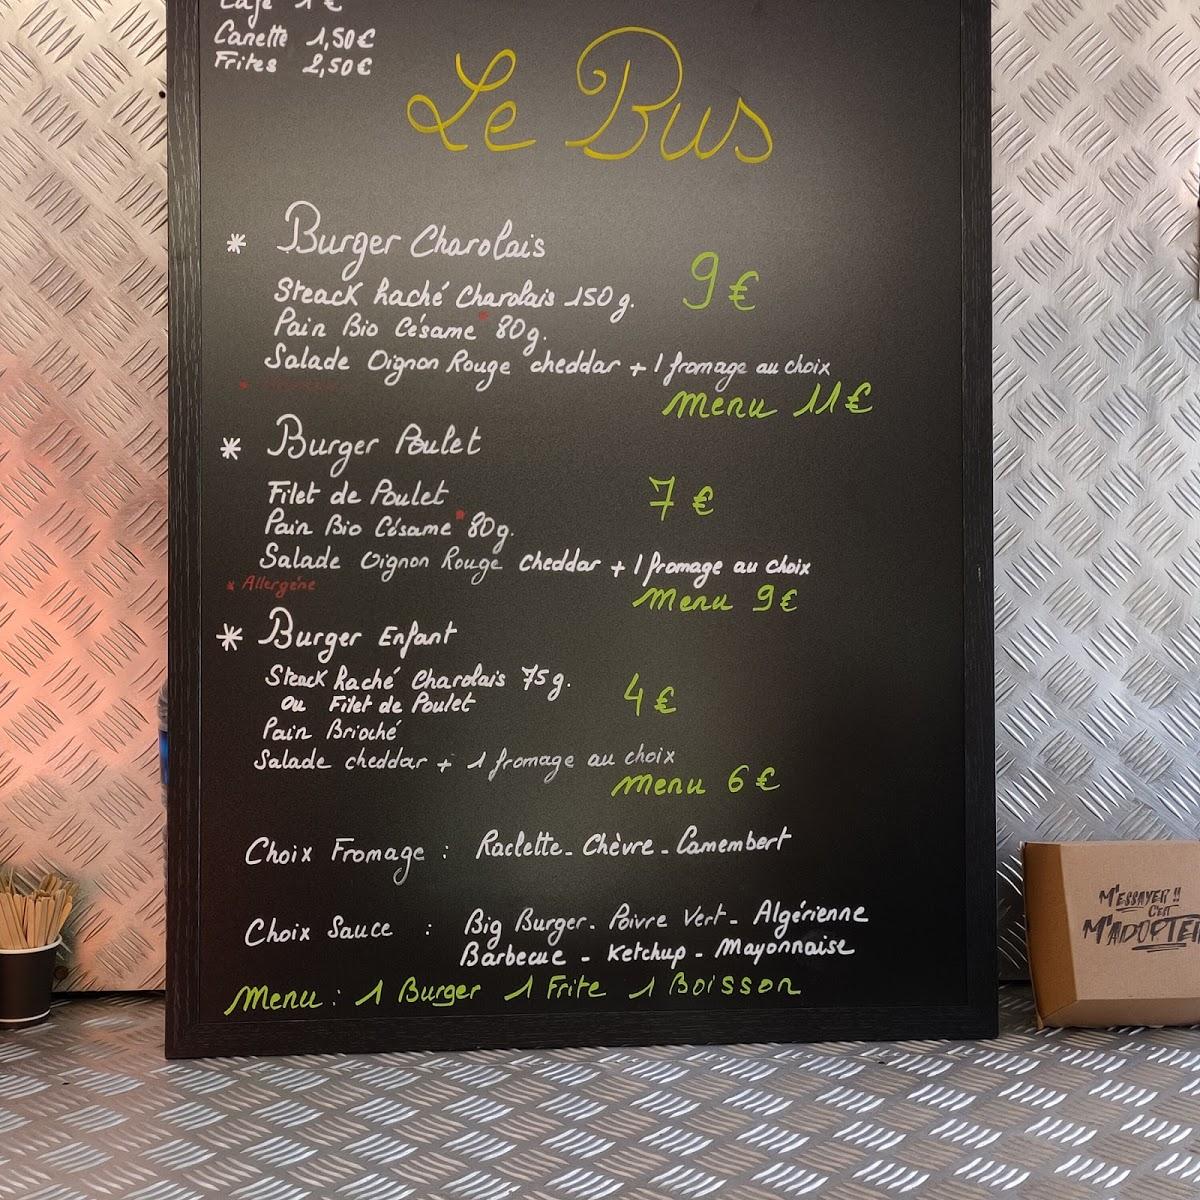 Café 1 €
Canette 1,50€
Frites 2,50€
Le Bus
* Burger Charolais
9€
Steack haché Charolais 150 g.
Pain Bio Césame* 80g.
Salade Oignon Rouge cheddar + 1 fromage au choix
Menu 11€
* Burger Poulet
Filet de Poulet
7 €
Pain Bio Césame* 80g.
Salade Oignon Rouge cheddar + 1 fromage au choix
* Allergène
Menu 9€
* Burger Enfant
Steack haché Charolais 75 g.
ou Filet de Poulet
4 €
Pain Brioché
Salade cheddar + 1 fromage au choix
Menu 6 €
Choix Fromage : Raclette - Chèvre - Camembert
Choix Sauce : Big Burger - Poivre Vert - Algérienne
Barbecue - Ketchup - Mayonnaise
Menu : 1 Burger 1 Frite 1 Boisson
M'ESSAYER !!
C'EST
M'ADOPTER